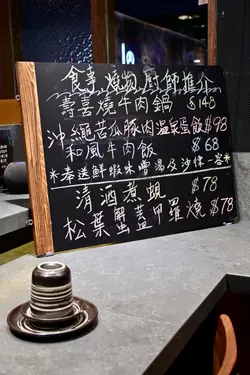 食事 燒物 廚師推介
壽喜燒牛肉鍋 $148
沖繩苦瓜豚肉溫泉蛋飯 $98
和風牛肉飯 $68
*奉送鮮蝦味噌湯及沙律一客*
清酒煮蜆 $78
松葉蟹蓋甲羅燒 $78